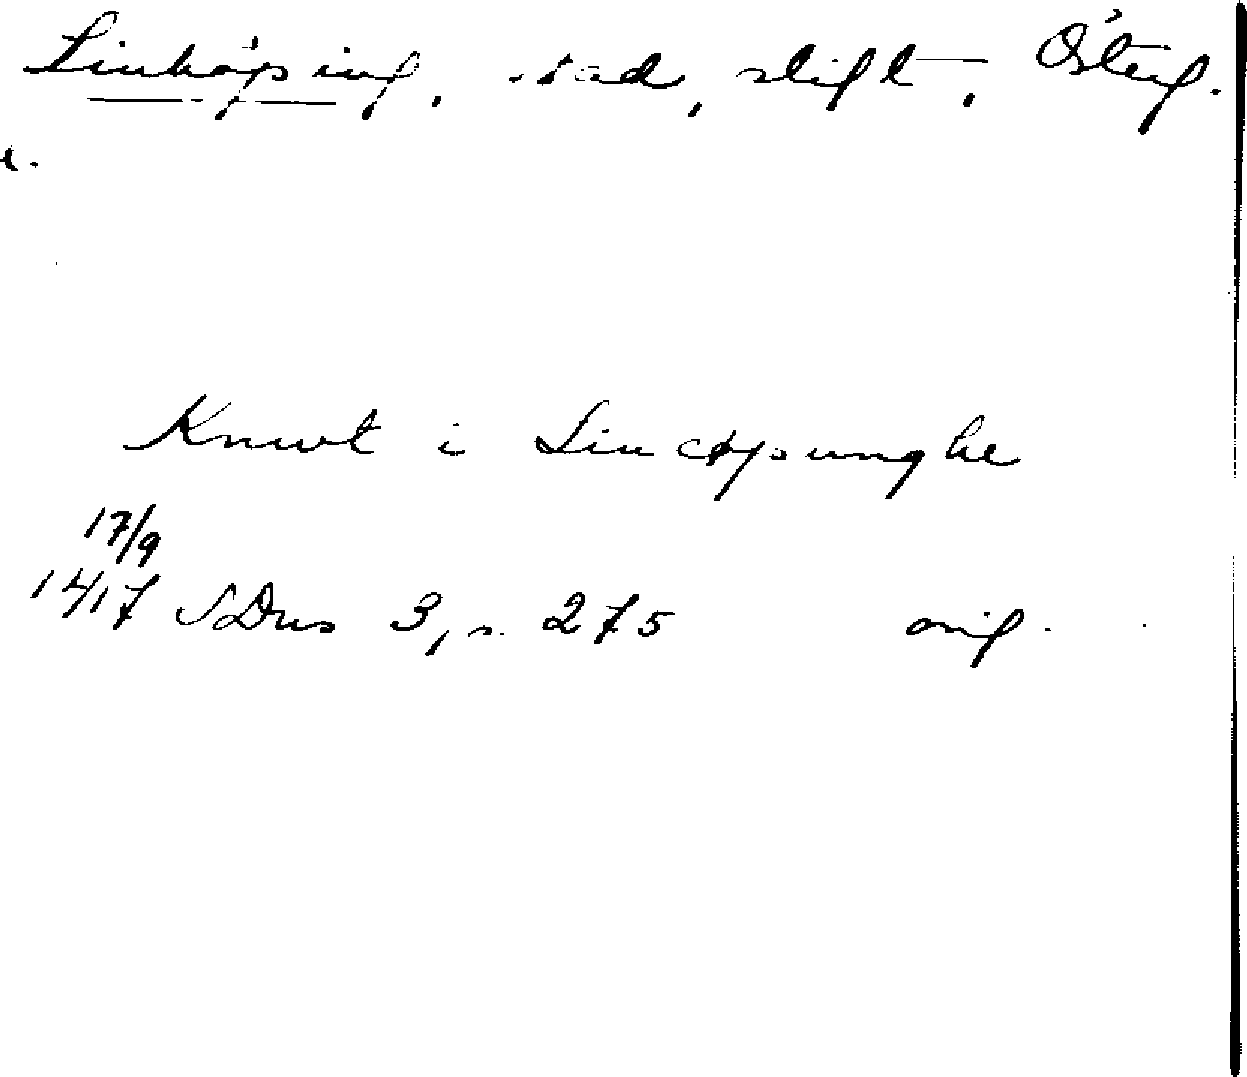 Linköping, stad, stift, Österg.
Knwt i Lincøpunghe
17/9
1417 SDns 3, s. 275 orig.